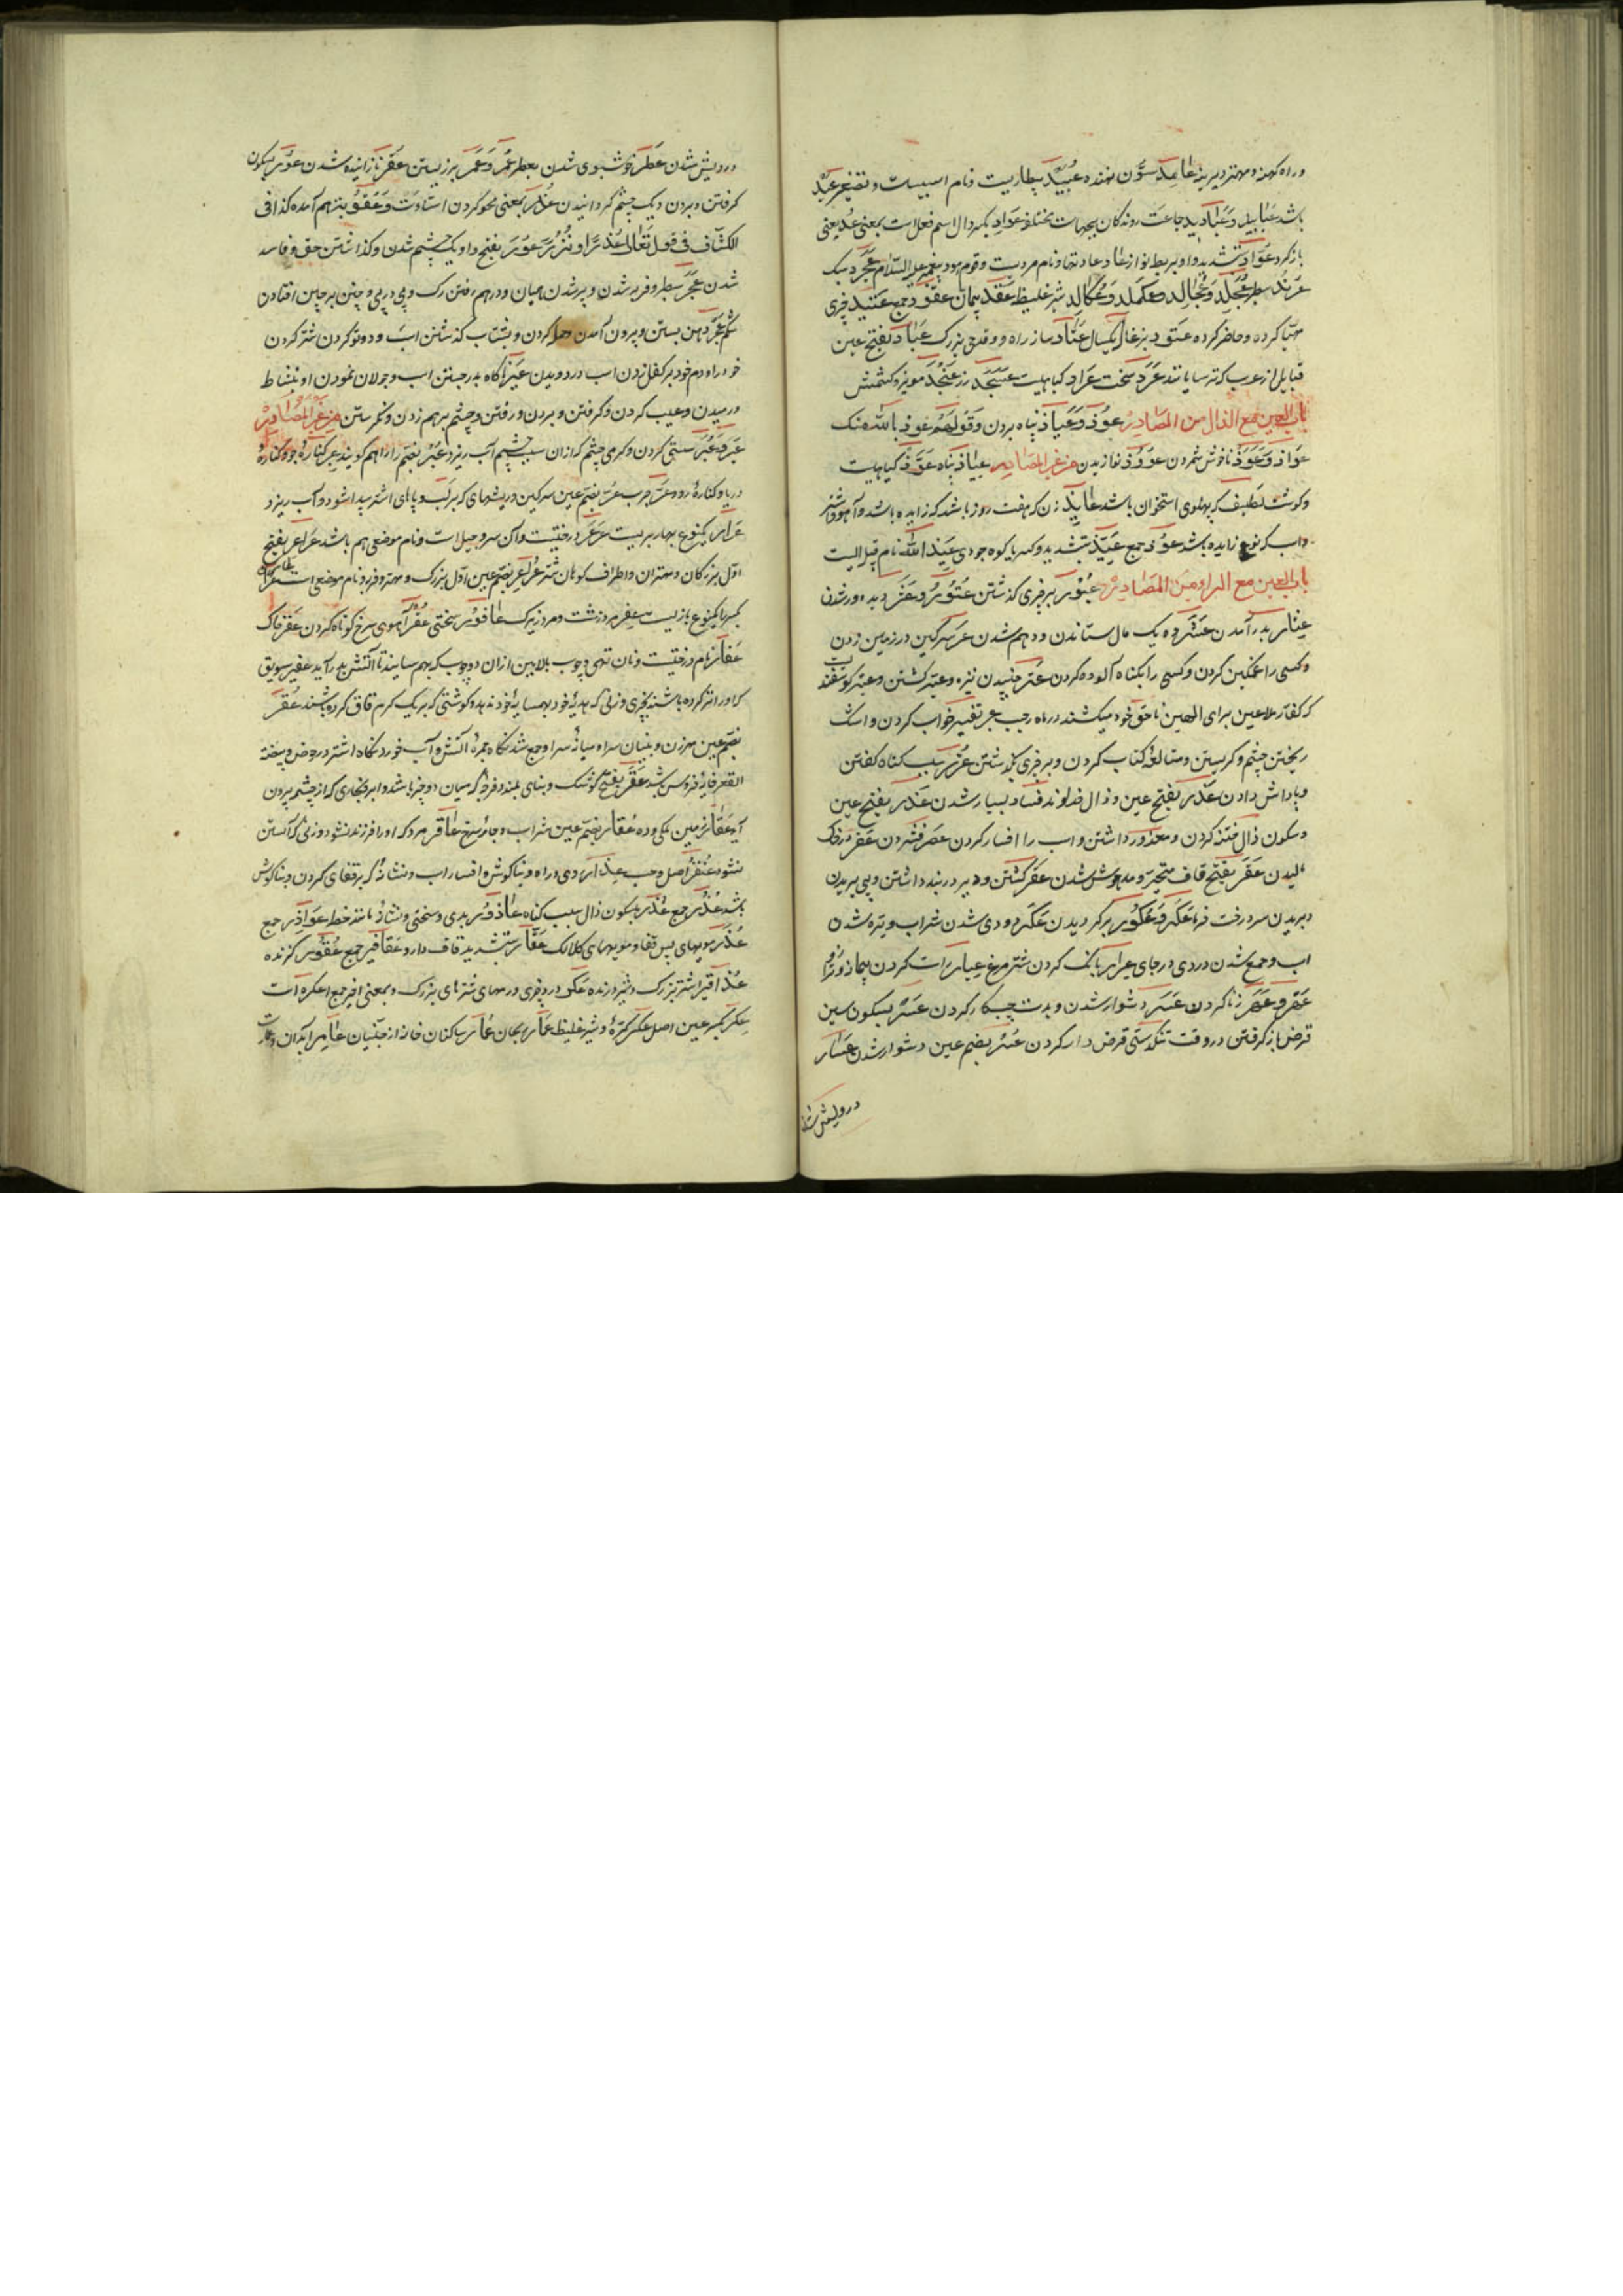 وراه کهنه ومهتر دیرینه عامد ستون نهنده عبید بیطاریست ونام اسبیست وتصغیر عبد
باشد عبابید وعبادید جماعت روندگان بجهات مختلفه عواد بکسر دال اسم فعل است بمعنی عد یعنی
بازگرد عواد بتشدید واو بربط نواز عاد عادتها ونام مردیست وقوم هود پیغمبر علیه السلام عجرد سبک
عرند سطبر عجلد وعجالد وعکلد وعکالد شیر غلیظ عقد پیمان عقود جمع عتید چیزی
مهیا کرده وحاضر کرده عتود بزغاله یکساله عتاد ساز راه وقدح بزرگ عباد بفتح عین
قبایل از عرب که ترسایانند عرد سخت عراد گیاهیست عسجد زر عنجد مویز وکشمش
باب العین مع الذال من المصادر عوذ وعیاذ پناه بردن وقولهم عوذ بالله منک
عواذ وعوذ ناخوش شمردن عوذ نوازیدن من غیر المصادر عیاذ پناه عوذ گیاهیست
وگوشت لطیف که پهلوی استخوان باشد عایذ زن که هفت روز باشد که زاییده باشد وآهو وشتر
واسب که نو زاییده باشد عوذ جمع عیذ بتشدید وکسر یا کوه جودی عیذ الله نام قبیله ایست
باب العین مع الراء من المصادر عبور بر چیزی گذشتن عثور وعثر دیده ور شدن
عثار بدر آمدن عشر ده یک مال ستاندن ودهم شدن عر سرگین در زمین زدن
وکسی را غمگین کردن وکسی را بگناه آلوده کردن عتر جنبیدن نیزه وعتیر کشتن وعتیر گوسفندیست
که کفار ملاعین برای الهین ناحق خود میکشند در ماه رجب عبر تفسیر خواب کردن واشک
ریختن چشم وگریستن ومطالعه کتاب کردن وبر چیزی بگذشتن عزر بسبب گناه گفتن
وپاداش دادن عذر بفتح عین وذال خداوند فساد بسیار شدن عذر بفتح عین
وسکون ذال ختنه کردن ومعذور داشتن واسب را افسار کردن عصر فشردن عفر در خاک
مالیدن عقر بفتح قاف متحیر ومدهوش شدن عقر کشتن ودیر در بند داشتن وپی بریدن
وبریدن سر درخت خرما عکر وعکور برگردیدن عکر دردی شدن شراب وتیره شدن
آب وجمع شدن دردی در جای عرار بانگ کردن شترمرغ عیار راست کردن پیمانه وترازو
عهر وعهر زنا کردن عسر دشوار شدن وبدست چپ کار کردن عسر بسکون سین
قرض باز گرفتن در وقت تنگدستی قرض دار کردن عسر بضم عین دشوار شدن عسار
درویش شدن
درویش شدن عطر خوشبوی شدن بعطر عمر وعمر بر زیستن عقر نازاینده شدن عور بسکون
گرفتن وبردن ویک چشم گردانیدن عذر بمعنی محو کردن است وعفو نیز هم آمده کذا فی
الکشاف فی قوله تعالی عذرا او نذرا عور بفتح واو یک چشم شدن وگذاشتن حق وفاسد
شدن عجر سطبر وفربه شدن وپر شدن میان ودرهم رفتن رگ وپی در پی وچین بر چین افتادن
شکم عجر دهن بستن وبیرون آمدن وحمله کردن وبشتاب گذشتن اسب ودوتو کردن شتر گردن
خود را ودم خود بر کفل زدن اسب در دویدن عیر ناگاه بدر جستن اسب وجولان نمودن او بنشاط
ورمیدن وعیب کردن وگرفتن وبردن ورفتن وچشم برهم زدن ونگرستن من غیر المصادر
عبر وعبر سستی کردن وگرمی چشم که از آن سبب چشم آب ریزد وعبر بضم را را هم گویند عبر کناره جو وکناره
دریا وکناره رود عر جرب عر بضم عین سرگین وریشهای که بر لب وپاهای اشتر پیدا شود وآب ریزد
عرار یکنوع بهار بریست عرعر درختیست وآن سرو جبل است ونام موضعی هم باشد عراعر بفتح
اول بزرگان ومهتران واطراف کوهان شتر عراعر بضم عین اول بزرگ ومهتر وفربه ونام موضعی است عر
بکسر یکنوع بازیست عفر مرد زشت ومرد زیرک عافور سختی عفر آهوی سرخ کوتاه گردن عفر خاک
عفار نام درختیست ونان تهی وچوب بالایین از آن دو چوب که بهم سایند تا آتش بدر آید عفیر سویق
که او را تر کرده باشند بچیزی وزنی که هدیه خود بهمسایه خود ندهد وگوشتی که بر ریگ گرم قاق کرده باشند عقر
بضم عین مهر زن وبنیان سرا ومیانه سرا وجمع شدنگاه جمره آتش وآب خوردنگاه اشتر در حوض وبیضه
العقر خایه خروس باشد عقر بفتح کوشک وبنای بلند وفرجه که میان دو چیز باشد وابر وبخاری که از چشمه بیرون
آید عقار زمین ملکی وده عقار بضم عین شراب وجامه سرخ عاقر مرد که او را فرزند نشود وزنی که آبستن
نشود عنصر اصل وحسب عذار روی وراه وبناگوش وافسار اسب ونشانه که بر قفای گردن وبناگوش
باشد عذر جمع عذر بسکون ذال سبب گناه عاذور بدی وسختی ونشانه مانند خط عواذیر جمع
عذر مویهای پس قفا ومویهای کلالک عقار بتشدید قاف دارو عقاقیر جمع عقور گزنده
عذافر اشتر بزرگ وشیر درنده عکر درد چیزی ورمه‌های شترهای بزرگ وبمعنی اخیر جمع عکره است
عکر بکسر عین اصل عکر کثره وشیر غلیظ عمار ریحان عمار ساکنان خانه از جنیان عامر آبادان وعمارت